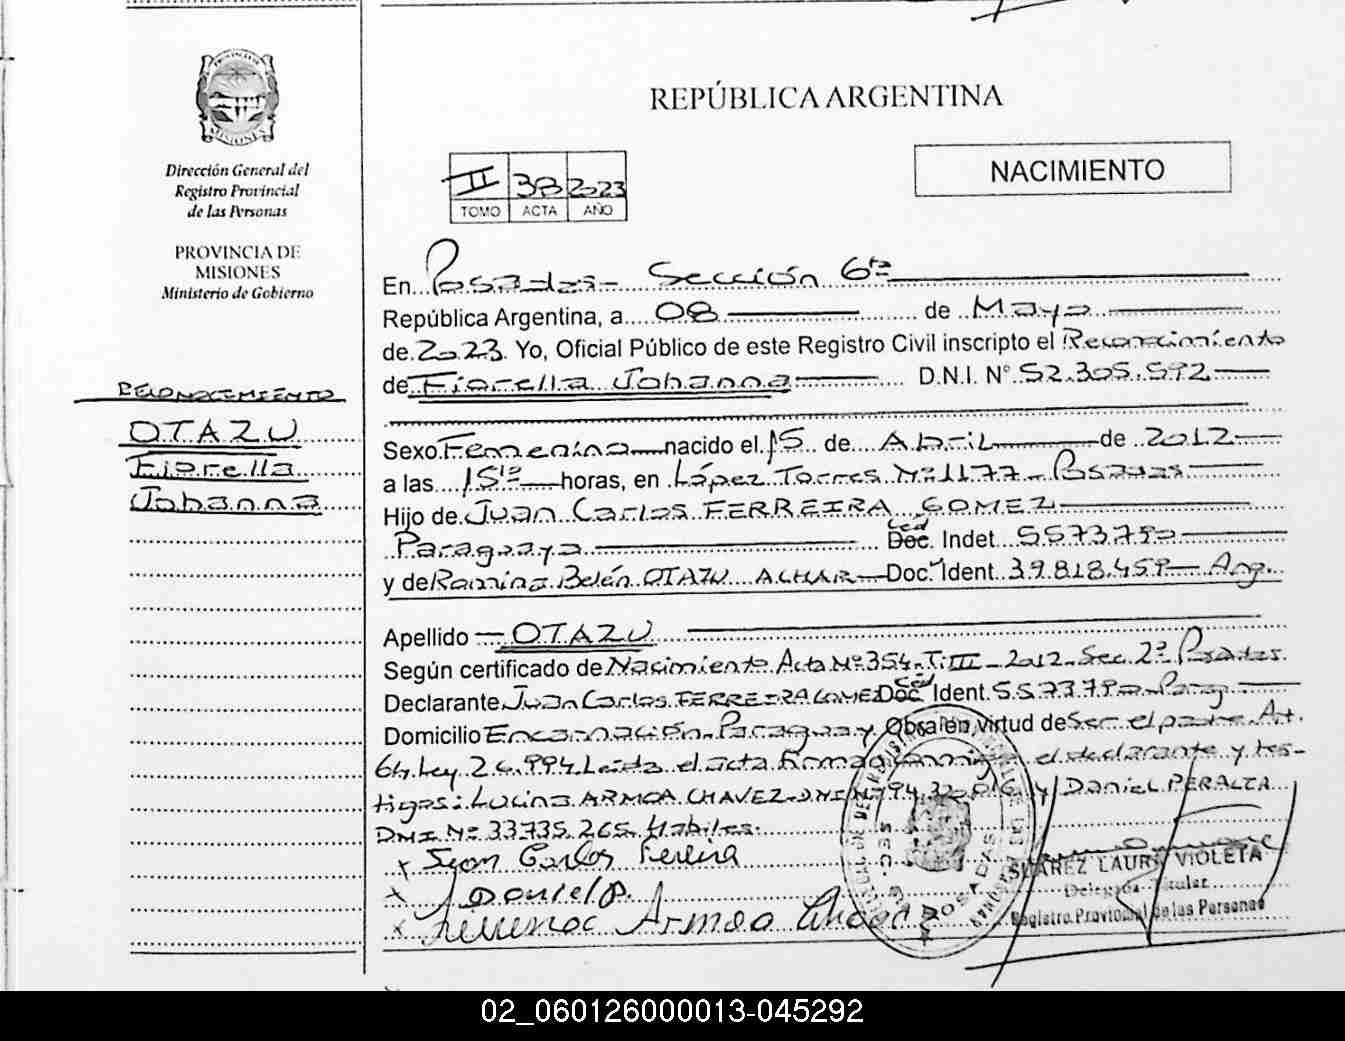 PROVINCIA DE
MISIONES
Dirección General del
Registro Provincial
de las Personas
PROVINCIA DE
MISIONES
Ministerio de Gobierno
RECONOCIMIENTO
OTAZU
Fiorella
Johanna
REPÚBLICA ARGENTINA
NACIMIENTO
II 38 2023
TOMO ACTA AÑO
En Posadas - Sección 6ta
República Argentina, a 08 de Mayo
de 2023. Yo, Oficial Público de este Registro Civil inscripto el Reconocimiento
de Fiorella Johanna D.N.I. N° 52.305.592
Sexo Femenino nacido el 15 de Abril de 2012
a las 15:10 horas, en López Torres Nº 1177 - Posadas
Hijo de Juan Carlos FERREIRA GOMEZ
Paraguayo Ced Doc. Indet. 5573790
y de Ramina Belén OTAZU ACHAR Doc. Ident. 39.818.459 Arg.
Apellido OTAZU
Según certificado de Nacimiento Acta Nº 354 - T. III - 2012 - Sec. 2ª Posadas
Declarante Juan Carlos FERREIRA GOMEZ Ced Doc. Ident. 5573790 - Parag.
Domicilio Encarnación - Paraguay Obra en virtud de Ser el padre Art.
64 Ley 26.994 Leída el acta firman conmigo el declarante y tes-
tigos: Lucina ARMOA CHAVEZ - DNI Nº 94. y Daniel PERALTA
DNI Nº 33735.265 Hábiles.
x Juan Carlos Fereira
x Daniel P.
x Armoa
SUAREZ LAURA VIOLETA
Delegada Titular
Registro Provincial de las Personas
02_060126000013-045292